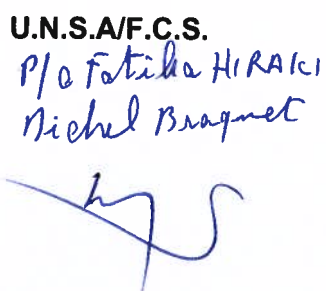 U.N.S.A/F.C.S.
P/o Fatiha HIRAKI
Michel Braquet